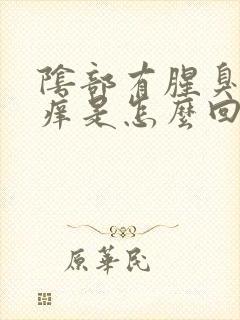 陰部有腥臭
痒是怎麼回
原華民